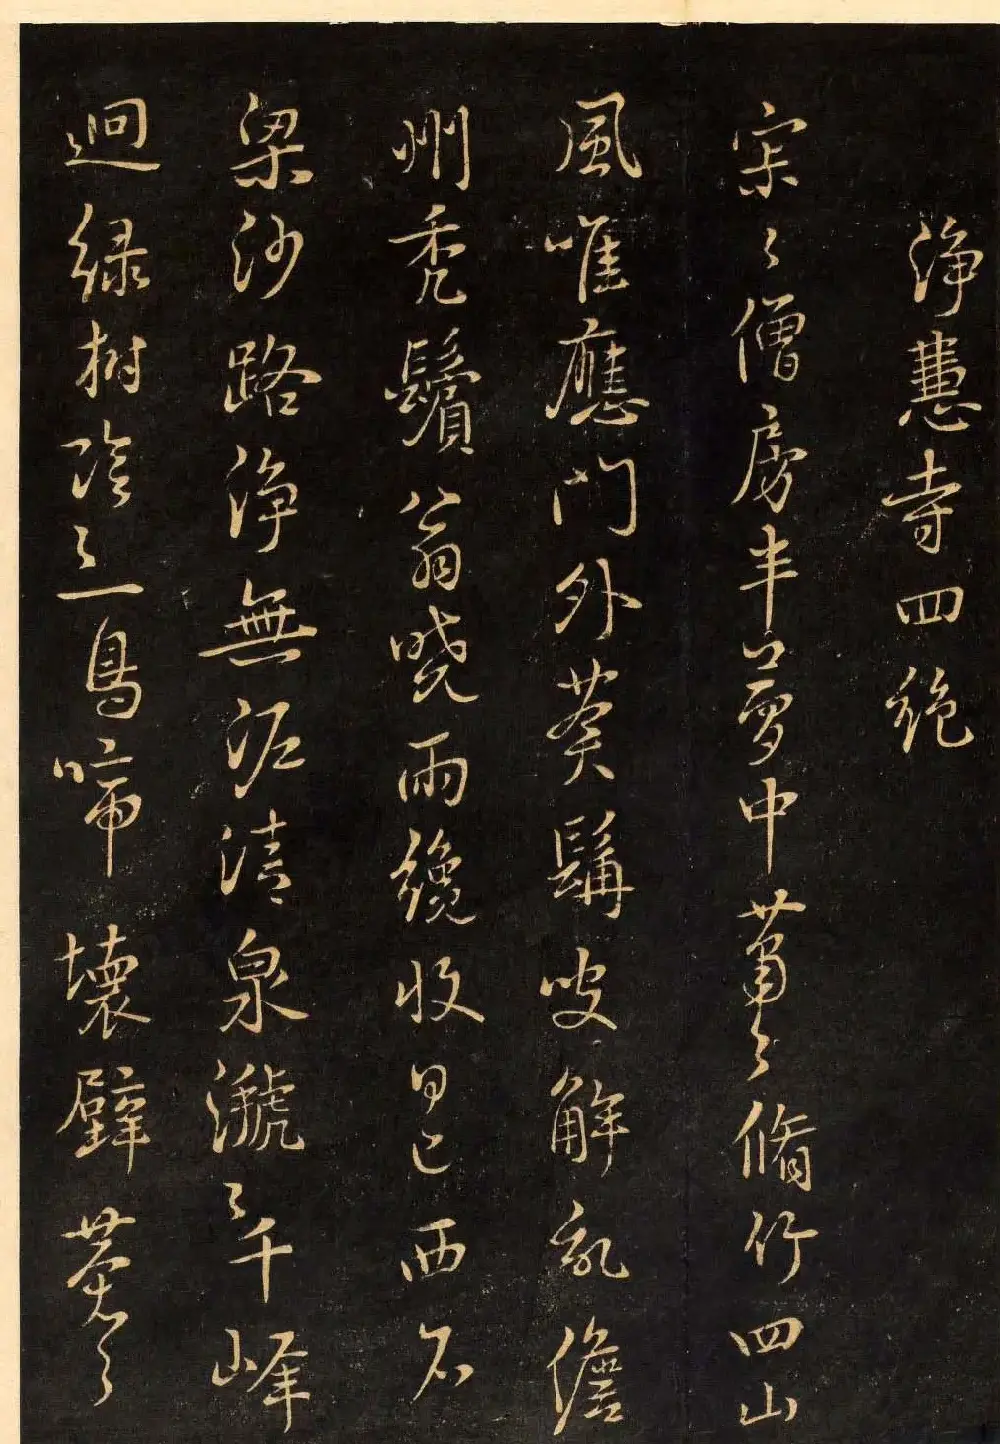 淨慧寺四絶
寂〻僧房半夢中蕭〻脩竹四山
風唯應門外黃髯叟解亂儋
州禿鬢翁曉雨纔收日已西石
梁沙路淨無泥清泉㶁〻千峰
迥綠樹陰〻一鳥啼壞壁蒼〻